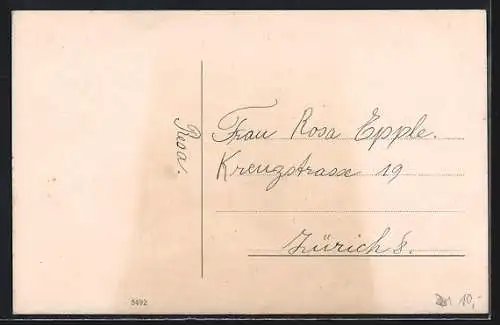 Resa.
Frau Rosa Epple.
Kreuzstrasse 19
Zürich 8.
5492
10,-